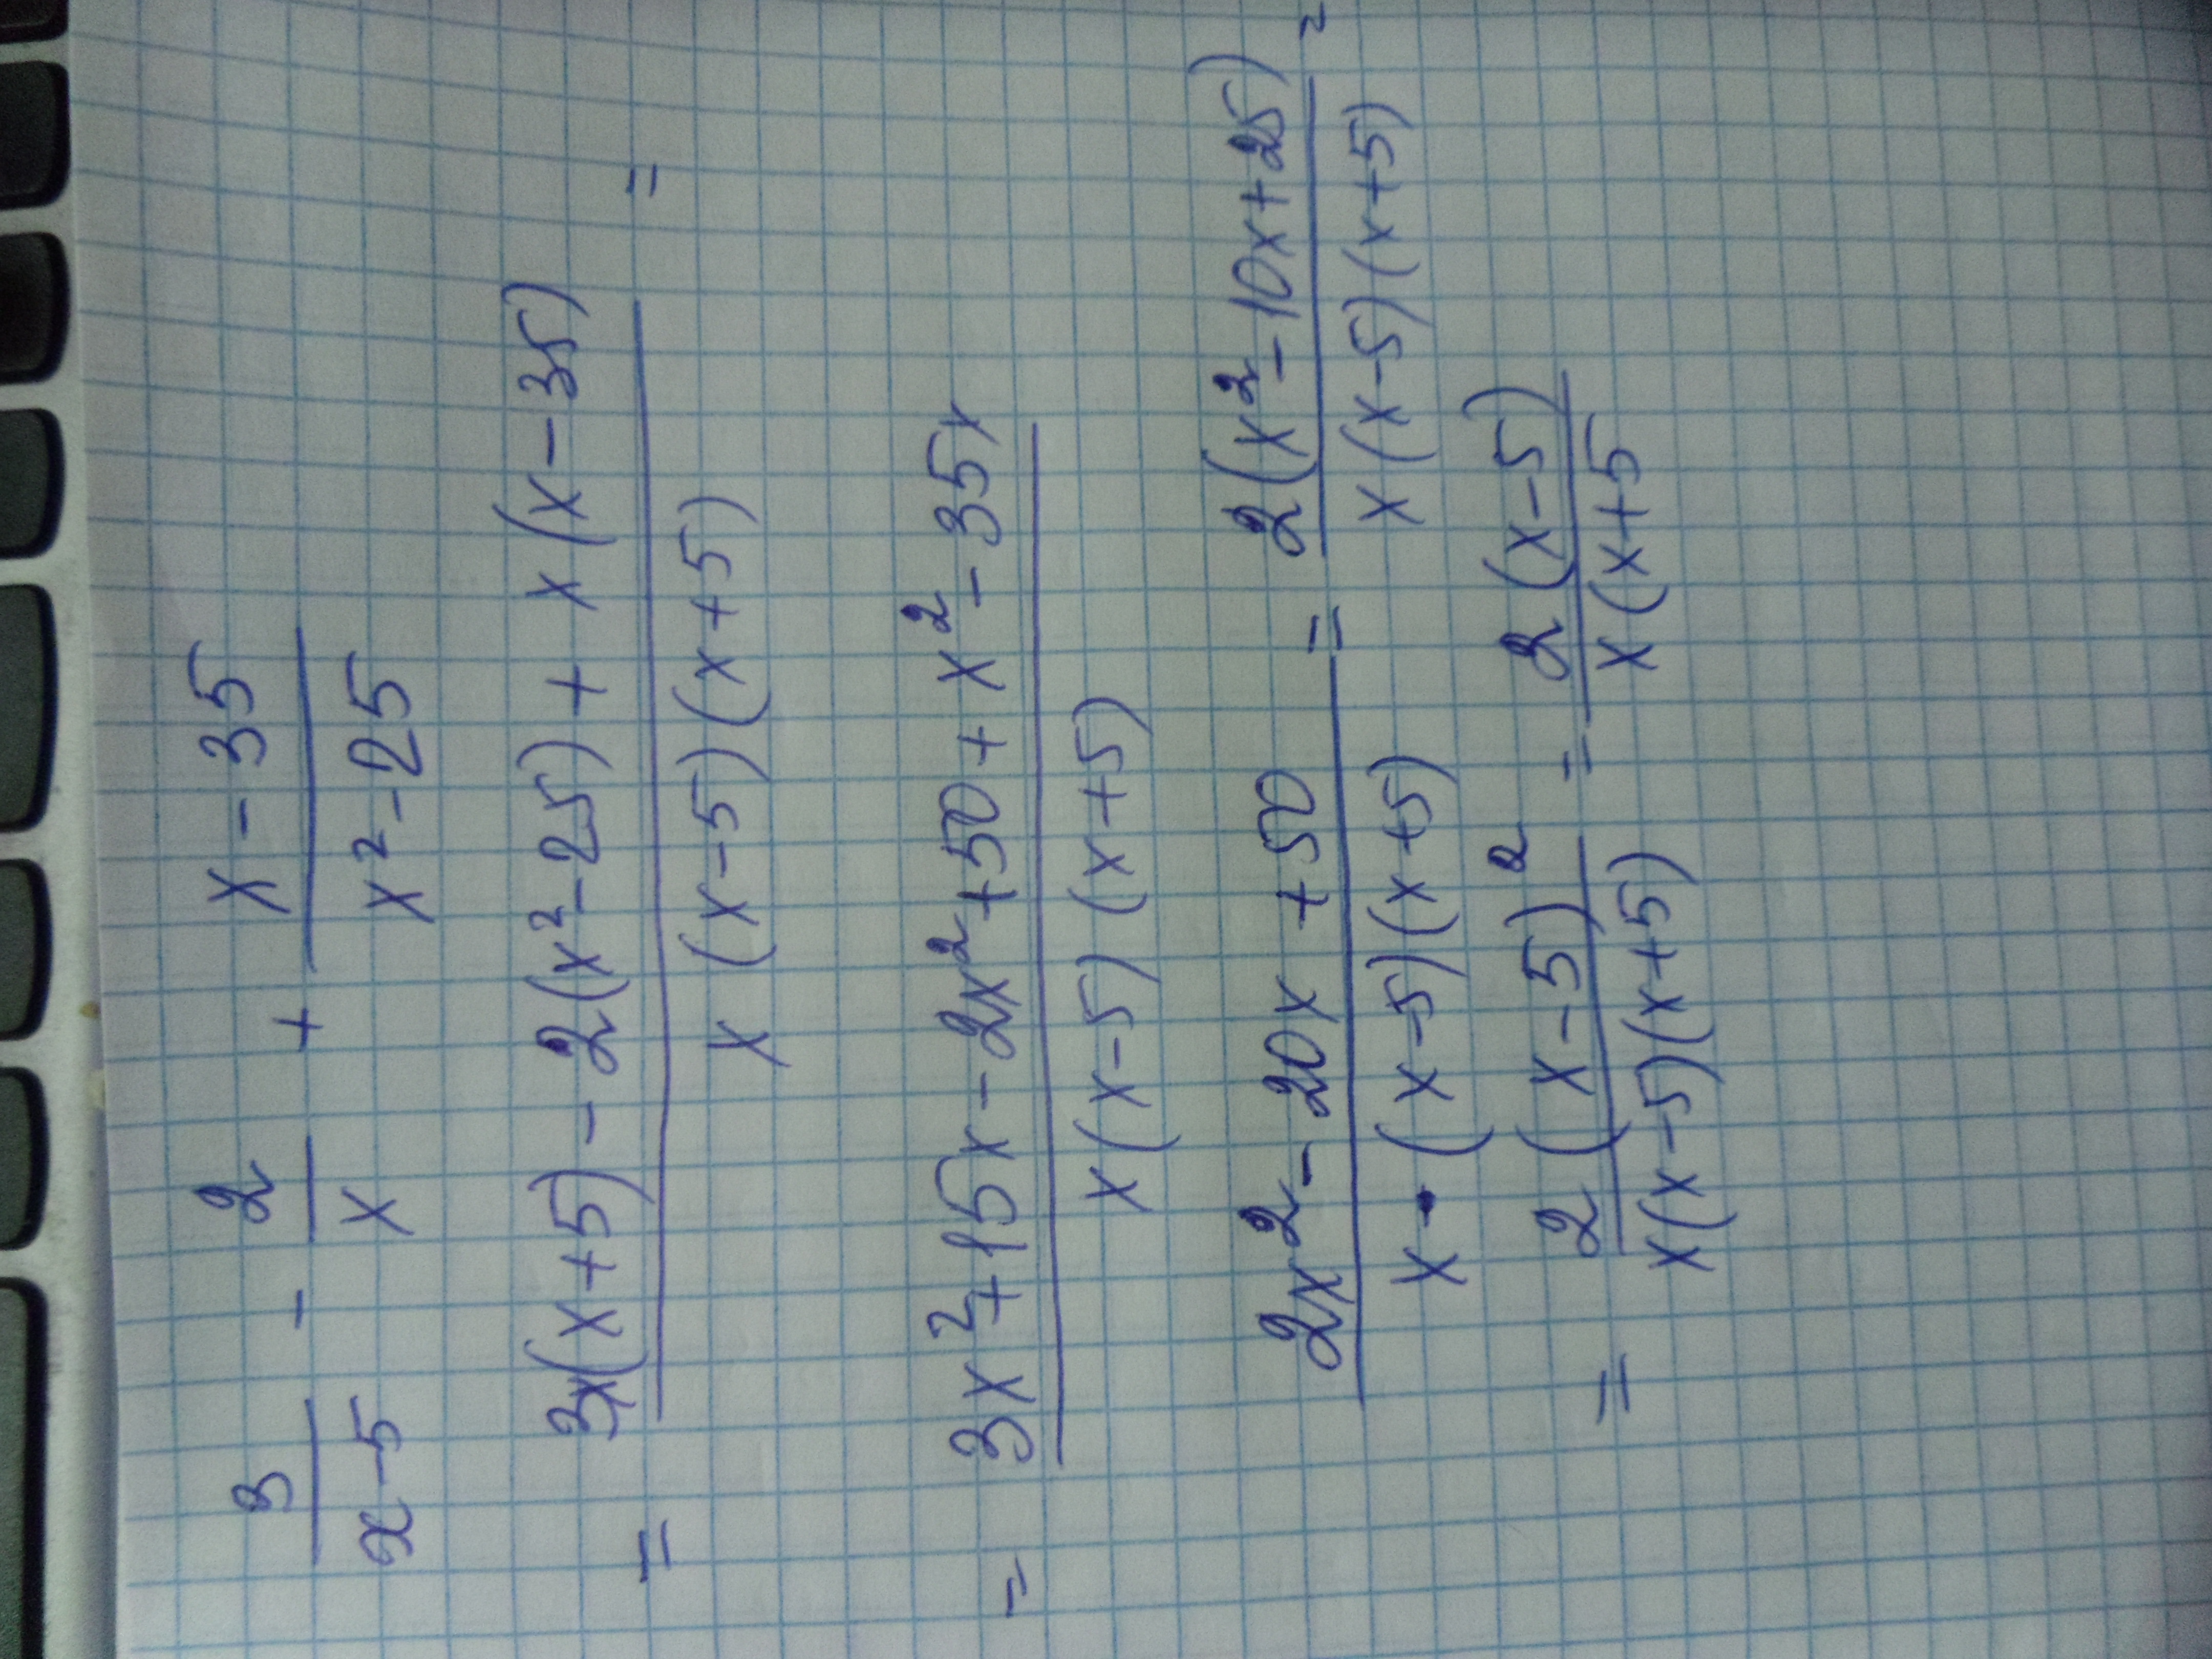 3/(x-5) - 2/x + (x-35)/(x²-25)
= (3x(x+5) - 2(x²-25) + x(x-35))/(x(x-5)(x+5)) =
= (3x²+15x-2x²+50+x²-35x)/(x(x-5)(x+5))
(2x²-20x+50)/(x·(x-5)(x+5)) = (2(x²-10x+25))/(x(x-5)(x+5)) =
= (2(x-5)²)/(x(x-5)(x+5)) = (2(x-5))/(x(x+5